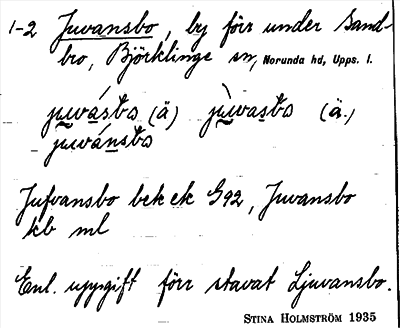 1-2 Juvansbo, by förr under Sand-
bro, Björklinge sn, Norunda hd, Upps. l.
juvásbo (ä) jùvasbo (ä.)
juvánsbo
Jufvansbo bek ek G92, Juvansbo
kb ml
Enl. uppgift förr stavat Ljuvansbo.
STINA HOLMSTRÖM 1935